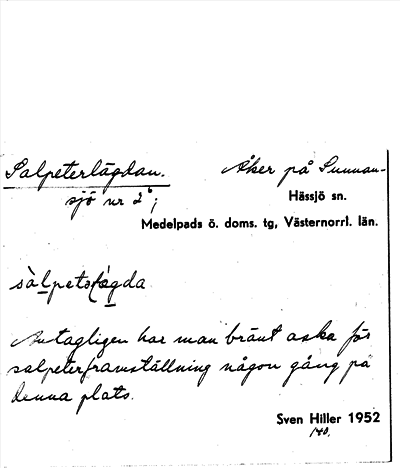 Salpeterlägdan. Åker på Sunnan-
sjö nr 2⁶;
Hässjö sn.
Medelpads ö. doms. tg, Västernorrl. län.
Antagligen har man bränt aska för
salpeterframställning någon gång på
denna plats.
Sven Hiller 1952
140.